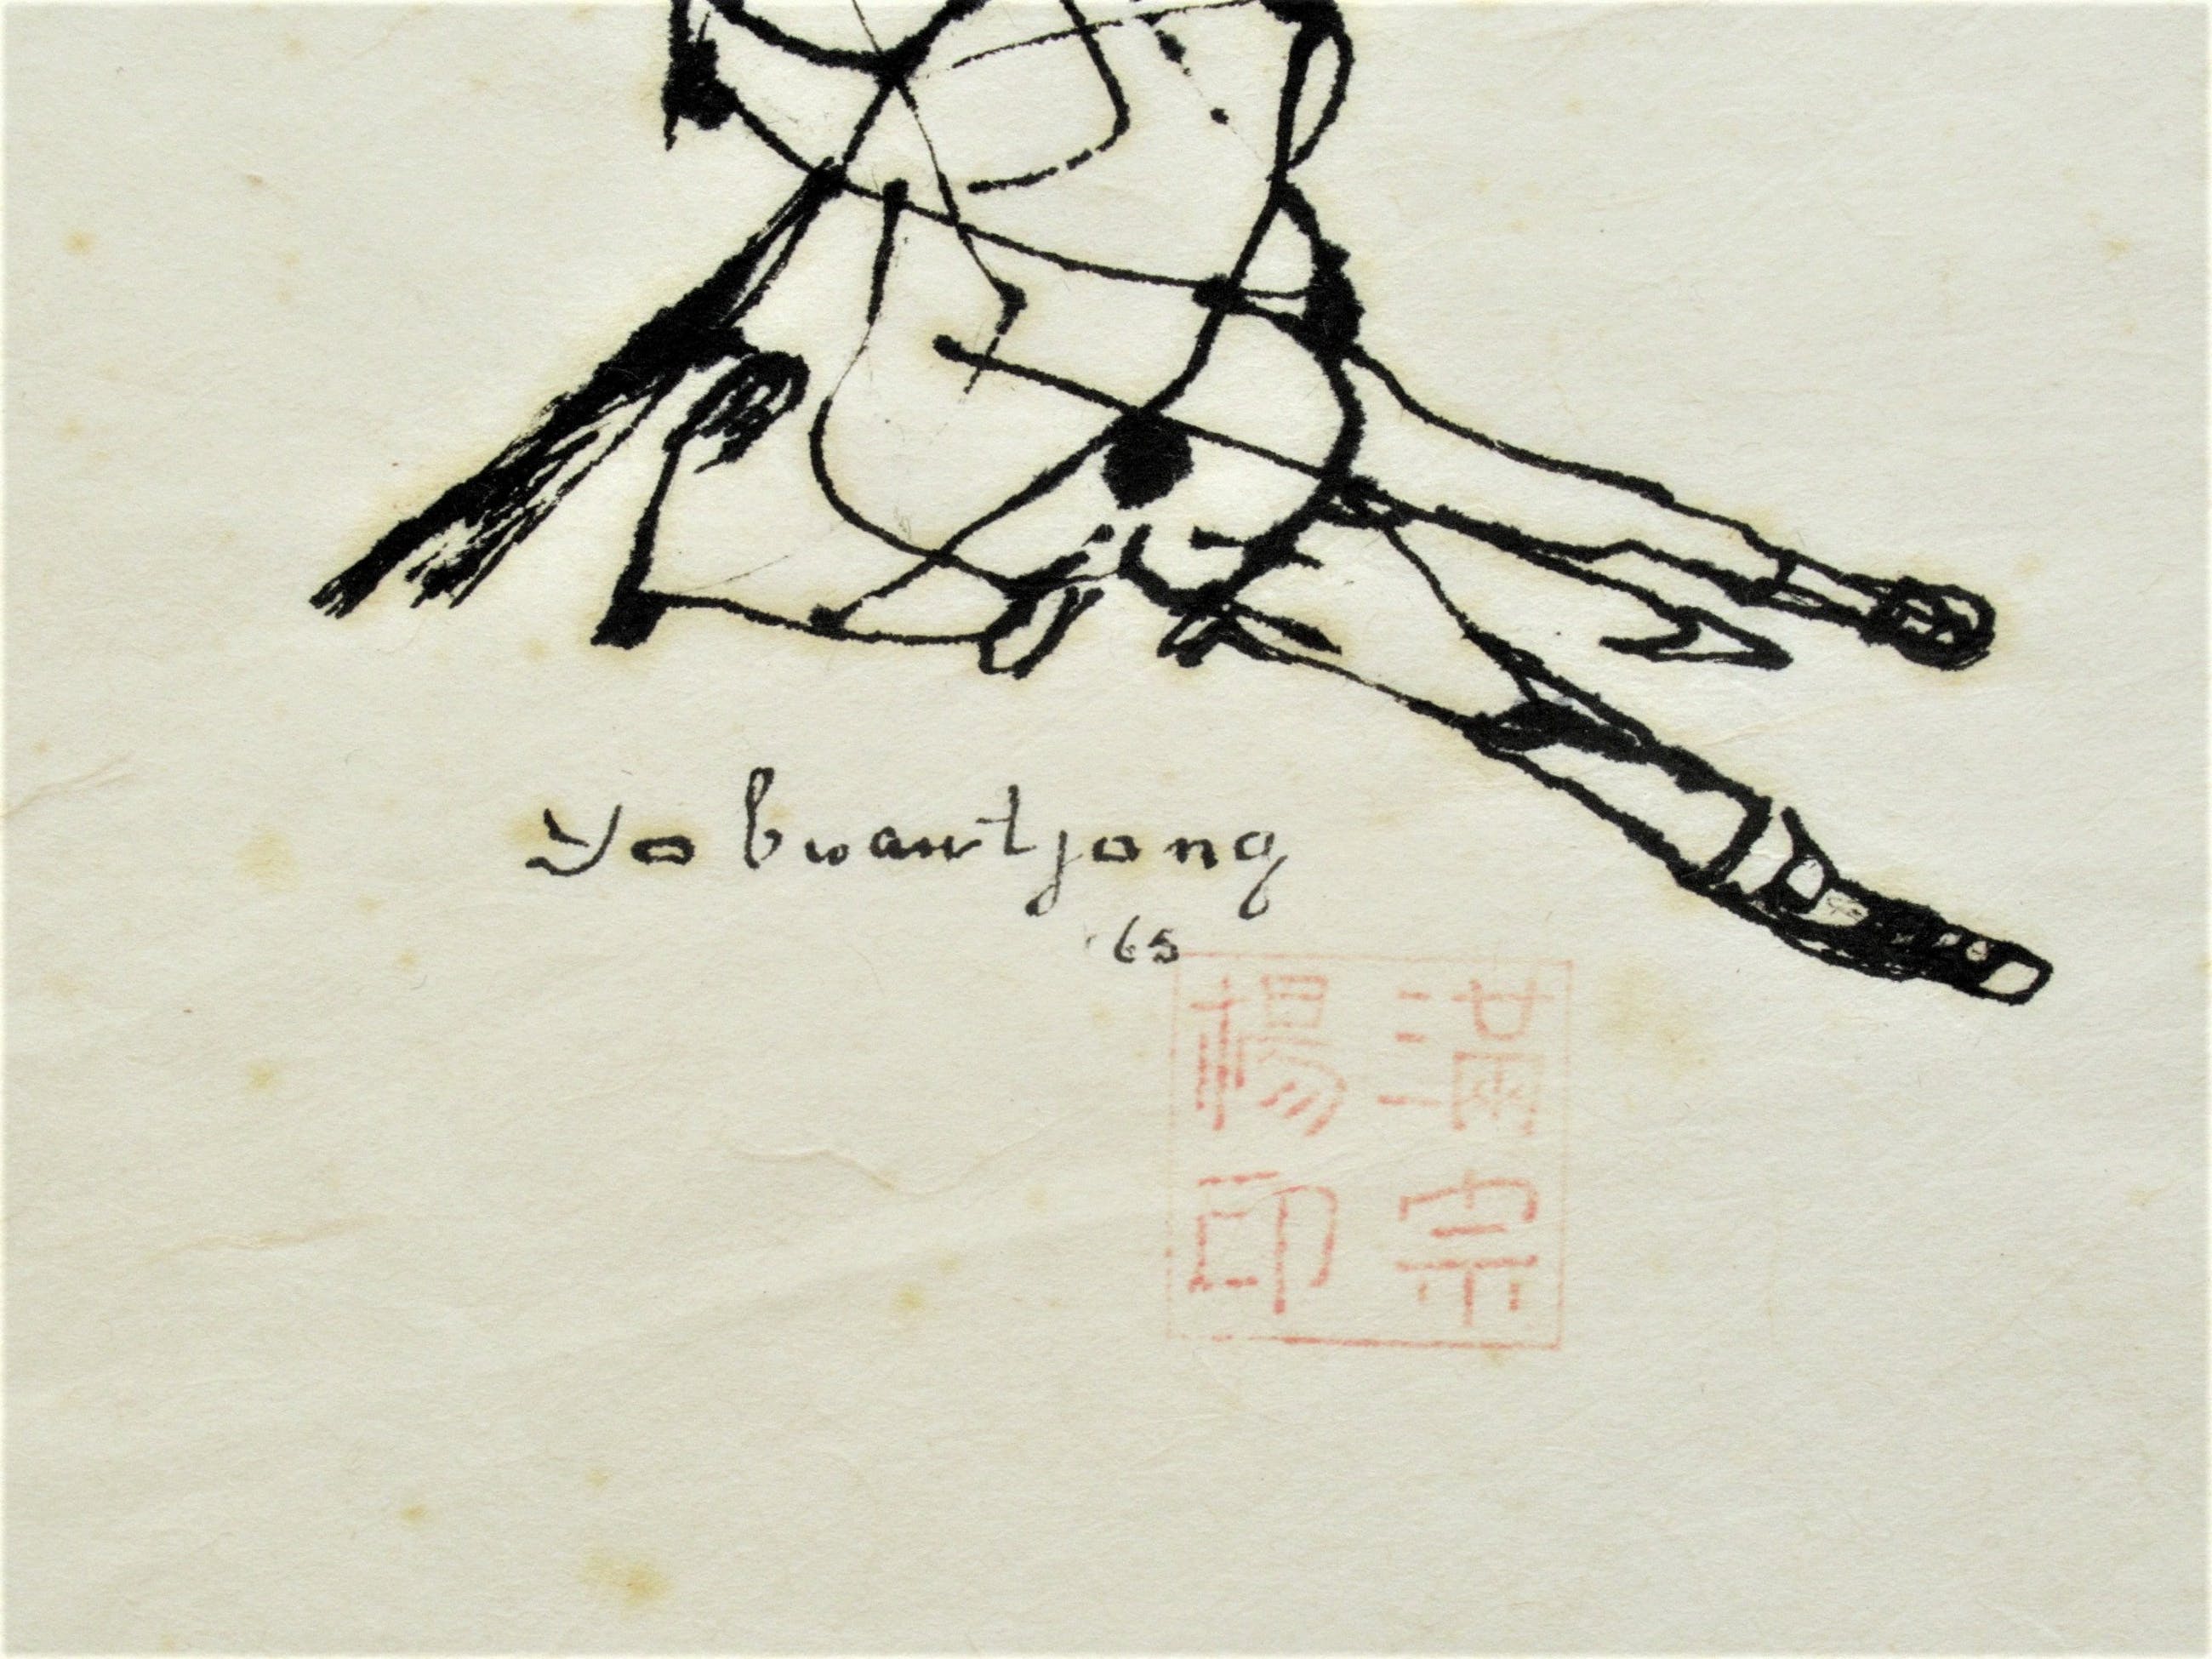 Yo buantjong
'65
楊滿
宗印